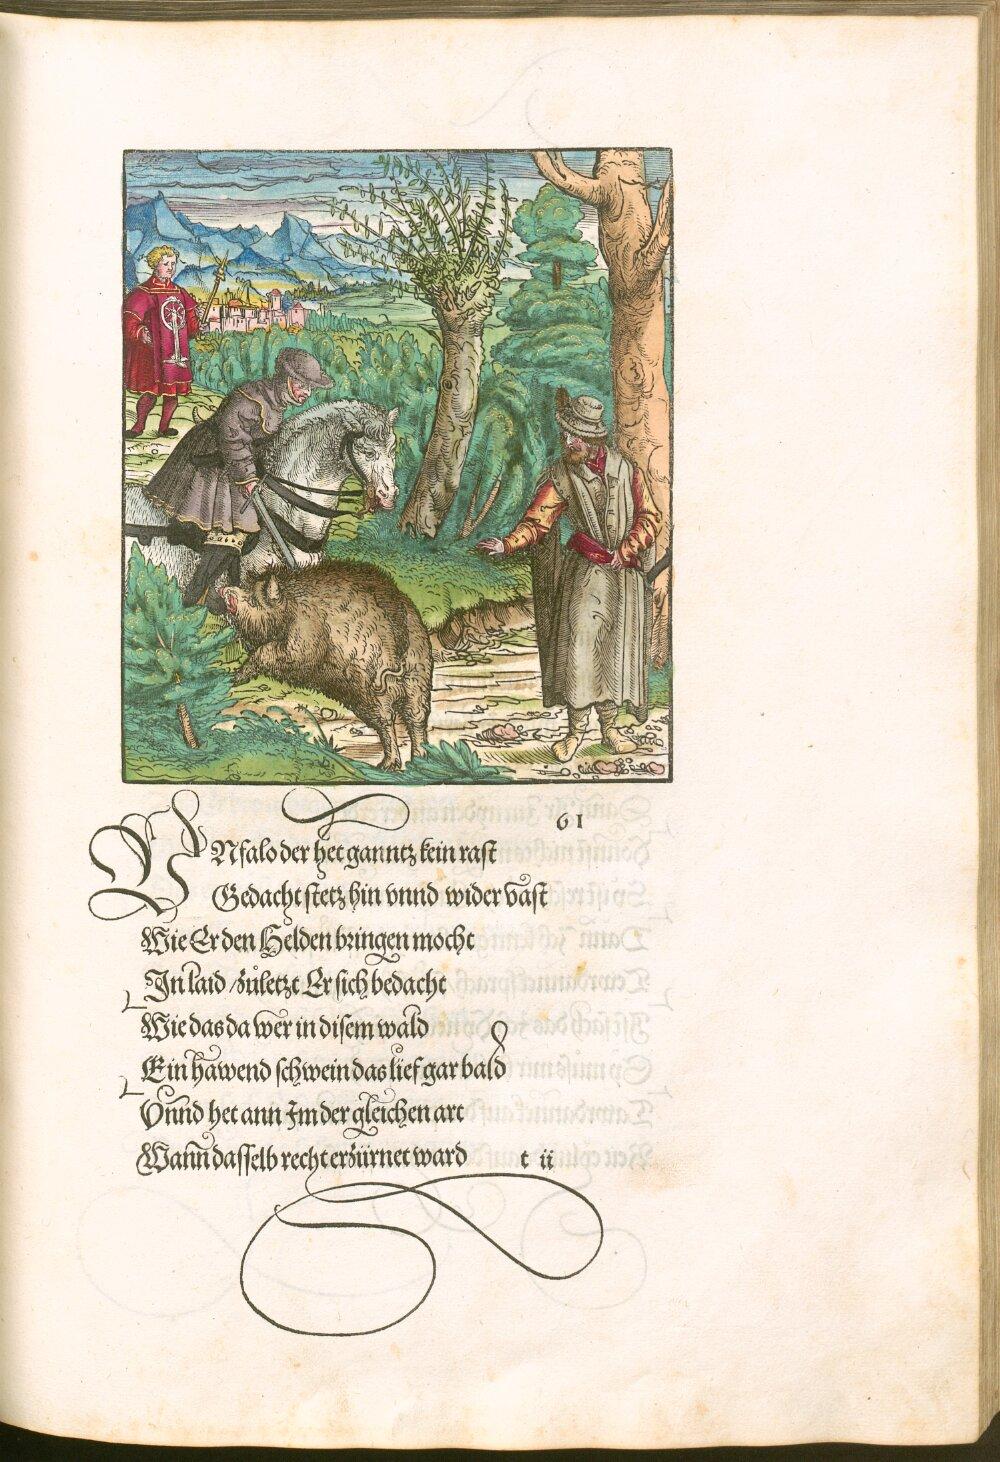 61
VNfalo der het ganntz kein rast
Gedacht stetz hin vnnd wider vast
Wie Er den Helden bringen mocht
In laid / zuͦletzt Er sich bedacht
Wie das da wer in disem wald
Ein hawend schwein das lief gar bald
Vnnd het ann Im der gleichen art
Wann dasselb recht erzürnet ward
t ii